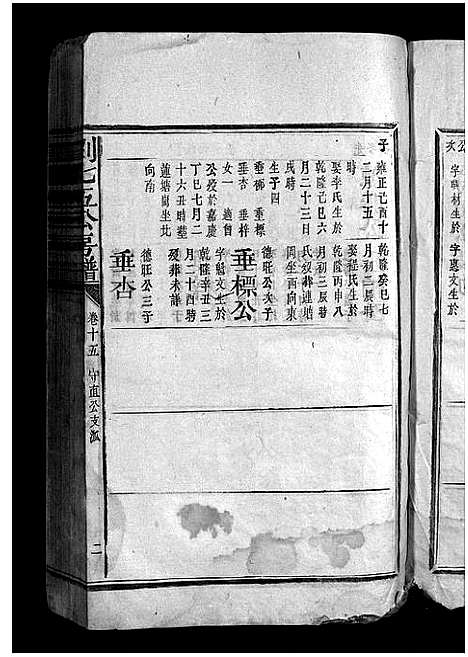 子
雍正己酉十
二月十五
時
娶李氏生於
乾隆己巳六
月二十三日
戌時
生子四
垂柳 垂標
垂杏 垂梓
女一 適曾
公歿於嘉慶
丁巳七月二
十六丑時墓
蓮塘崗坐北
向南
乾隆癸巳七
月初二辰時
娶程氏生於
乾隆丙申八
月初三辰時
氏歿葬蓮塘
岡坐西向東
德旺公次子
垂標公
字魁文生於
乾隆辛丑三
月二十四時
歿葬未詳
德旺公三子
垂杏
劉七五公房譜
卷十五 守直公支派
二